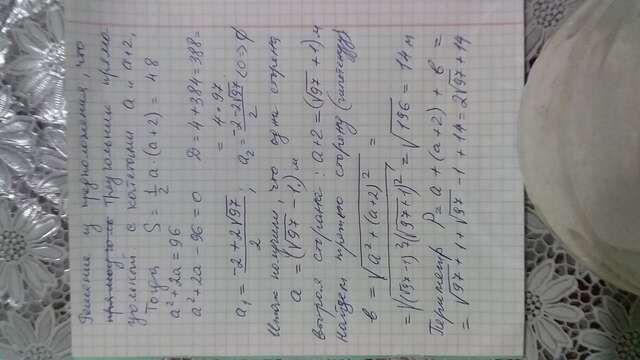 Решение из предположения, что
треугольник прямо-
угольный с катетами a и a+2,
Тогда S = 1/2 a·(a+2) = 48
a²+2a=96
a²+2a-96=0 D=4+384=388=
= 4·97
a₁ = (-2+2√97)/2 ; a₂ = (-2-2√97)/2 <0 => ∅
Итак получили, что одна сторона
a = (√97 - 1) м
вторая сторона: a+2 = (√97 + 1) м
Найдем третью сторону (гипотенузу)
в = √(a²+(a+2)²) =
= √((√97-1)²+(√97+1)²) = √196 = 14 м
Периметр P = a + (a+2) + в =
= √97+1+√97-1+14 = 2√97+14